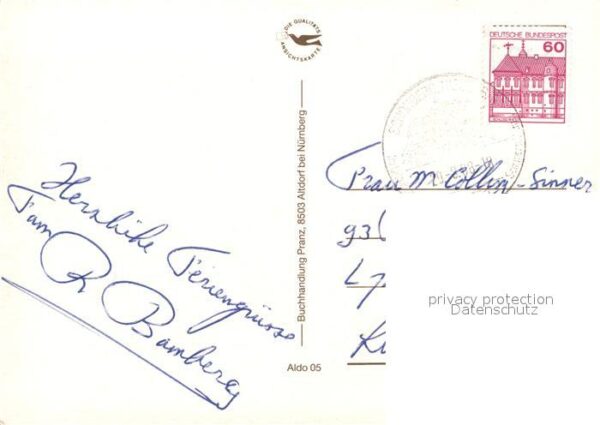 DIE QUALITÄTS
ANSICHTSKARTE
DEUTSCHE BUNDESPOST
60
Herzliche Feriengrüsse
Fam R Bamberg
Buchhandlung Pranz, 8503 Altdorf bei Nürnberg
Aldo 05
Frau M Collin-Sinner
privacy protection
Datenschutz